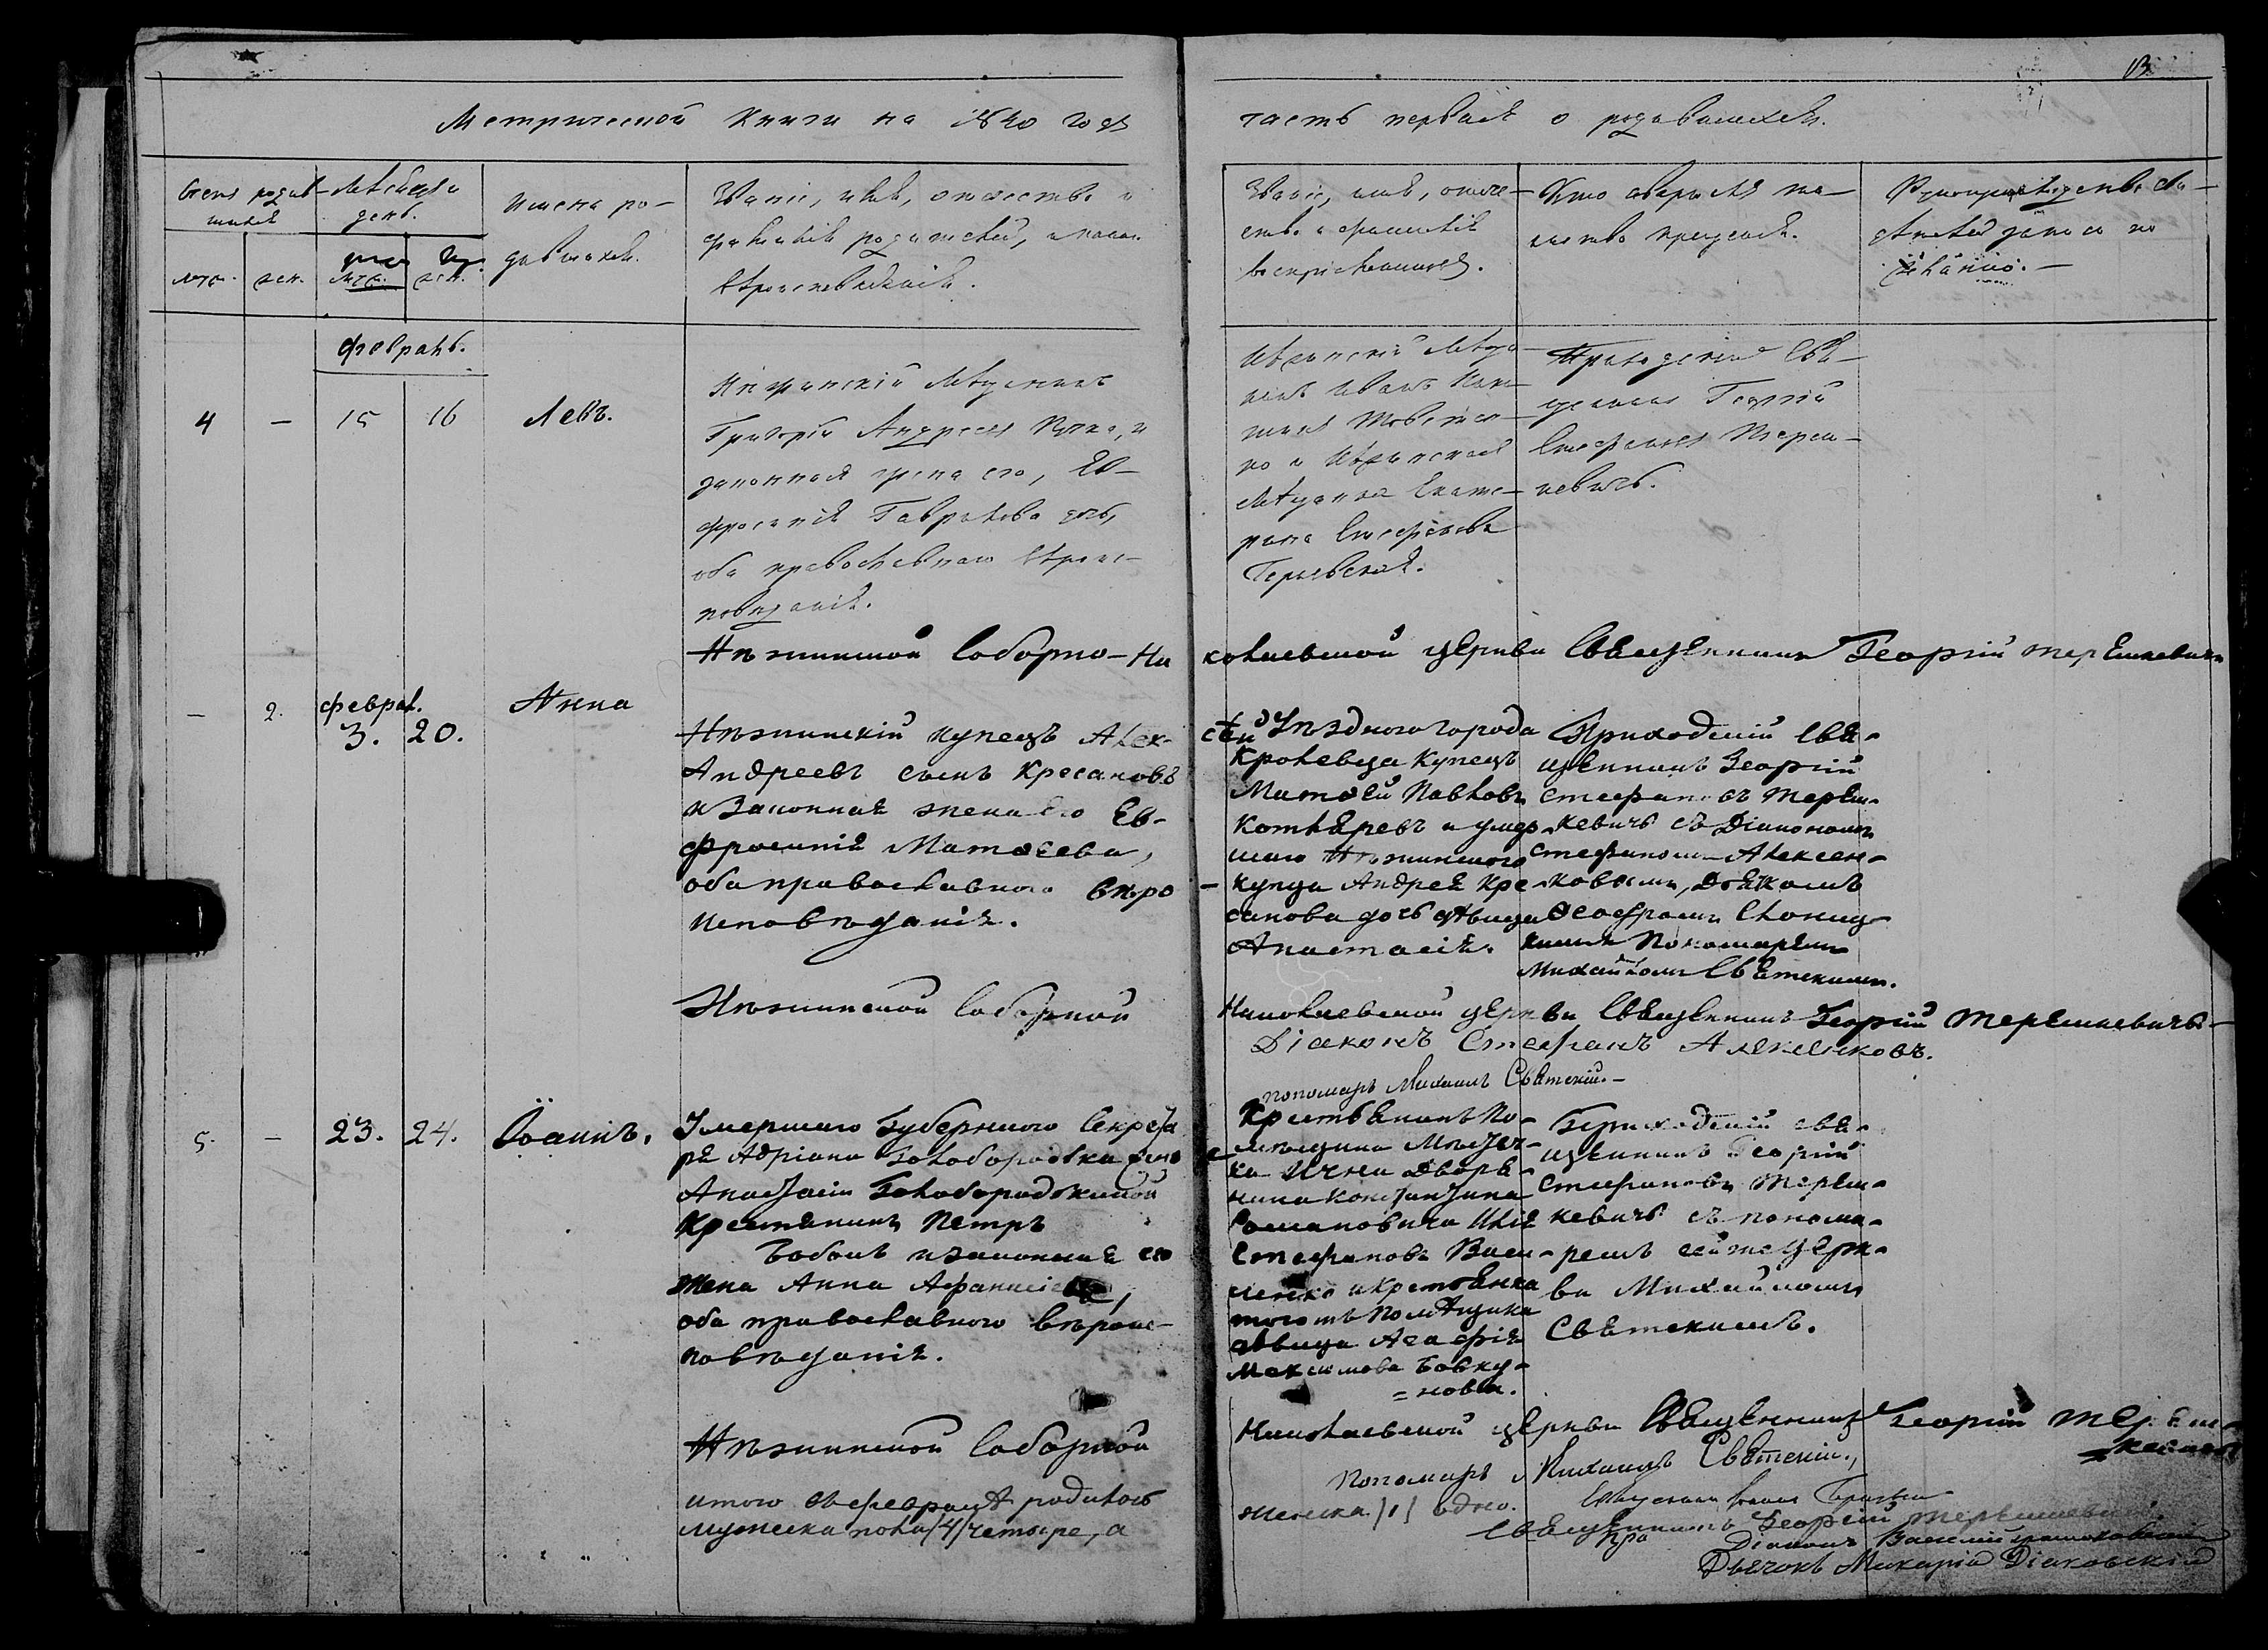 13
Метрической Книги на 1840 годъ
часть первая о родившихся.
Счетъ родив-
шихся
муж.
жен.
Мѣсяцъ и
день.
Имена ро-
дившихся.
Званіе, имя, отчество и
фамилія родителей, и какого
вѣроисповѣданія.
Званіе, имя, отче-
ство и фамилія
воспріемниковъ.
Кто совершалъ та-
инство крещенія.
Рукоприкладство сви-
дѣтелей записи по
желанію.
Февраль.
4
—
15
16
Левъ.
Нѣжинскій Мѣщанинъ
Григорій Андреевъ и
законная жена его, Ев-
фросинія Гаврилова дочь,
оба православнаго вѣроис-
повѣданія.
Нѣжинскій Мѣща-
нинъ Иванъ
и Нѣжинская
Мѣщанка Екате-
рина Стефанова
Приходскій Свя-
щенникъ Георгій
Стефановъ Тереш-
кевичъ.
Нѣжинской Соборно-Ни
колаевской церкви Священникъ Георгій Терешкевичъ
—
2.
феврал.
3. 20.
Анна
Нѣжинскій купецъ Алек-
сѣй
Андреевъ сынъ Кресановъ
и Законная жена его Ев-
фросинія Матѳеева,
оба православного вѣро-
исповѣданія.
Уѣздного города
Кролевца Купецъ
Матѳей Павловъ
Котляревъ и умер-
шаго Нѣжинского
купца Андрея Кре-
санова дочь дѣвица
Анастасія.
Приходскій Свя-
щенникъ Георгій
Стефановъ Тереш-
кевичъ съ Діакономъ
Стефаномъ Алексен-
ковымъ, Дьякомъ
Пономаремъ
Михайломъ Святскимъ.
Нѣжинской Соборной
Николаевской церкви Священникъ Георгій Терешкевичъ
Діаконъ Стефанъ Алексенковъ.
пономарь Михаилъ Святскій.—
5.
—
23.
24.
Іоаннъ.
Умершаго Губернского Секрета
ря Адріана Голобородька жены
Анастасіи Голобородькиной
Крестянинъ Петръ
Бобель и законная его
жена Анна
оба православного вѣроис-
повѣданія.
Крестьянинъ По-
мѣщика Мѣстеч-
ка Ични Дворя-
нина Константина
Романовича Илія
Стефановъ Васи-
ленко и крестьянка
того жъ Помѣщика
дѣвица Агафія
Максимова Бовку-
=нова.
Приходскій Свя-
щенникъ Георгій
Стефановъ Тереш-
кевичъ съ понома-
ремъ сей же Церк-
ви Михайломъ
Святскимъ.
Нѣжинской Соборной
Николаевской церкви Священникъ Георгій Тереш-
кевичъ
Пономарь Михаилъ Святскій.
итого въ февралѣ родилось
мужеска пола /4/ четыре, а
женска /1/ одно.
Священникъ Георгій Терешкевичъ
Діаконъ Василій
Дьячокъ Макарій Діаковскій